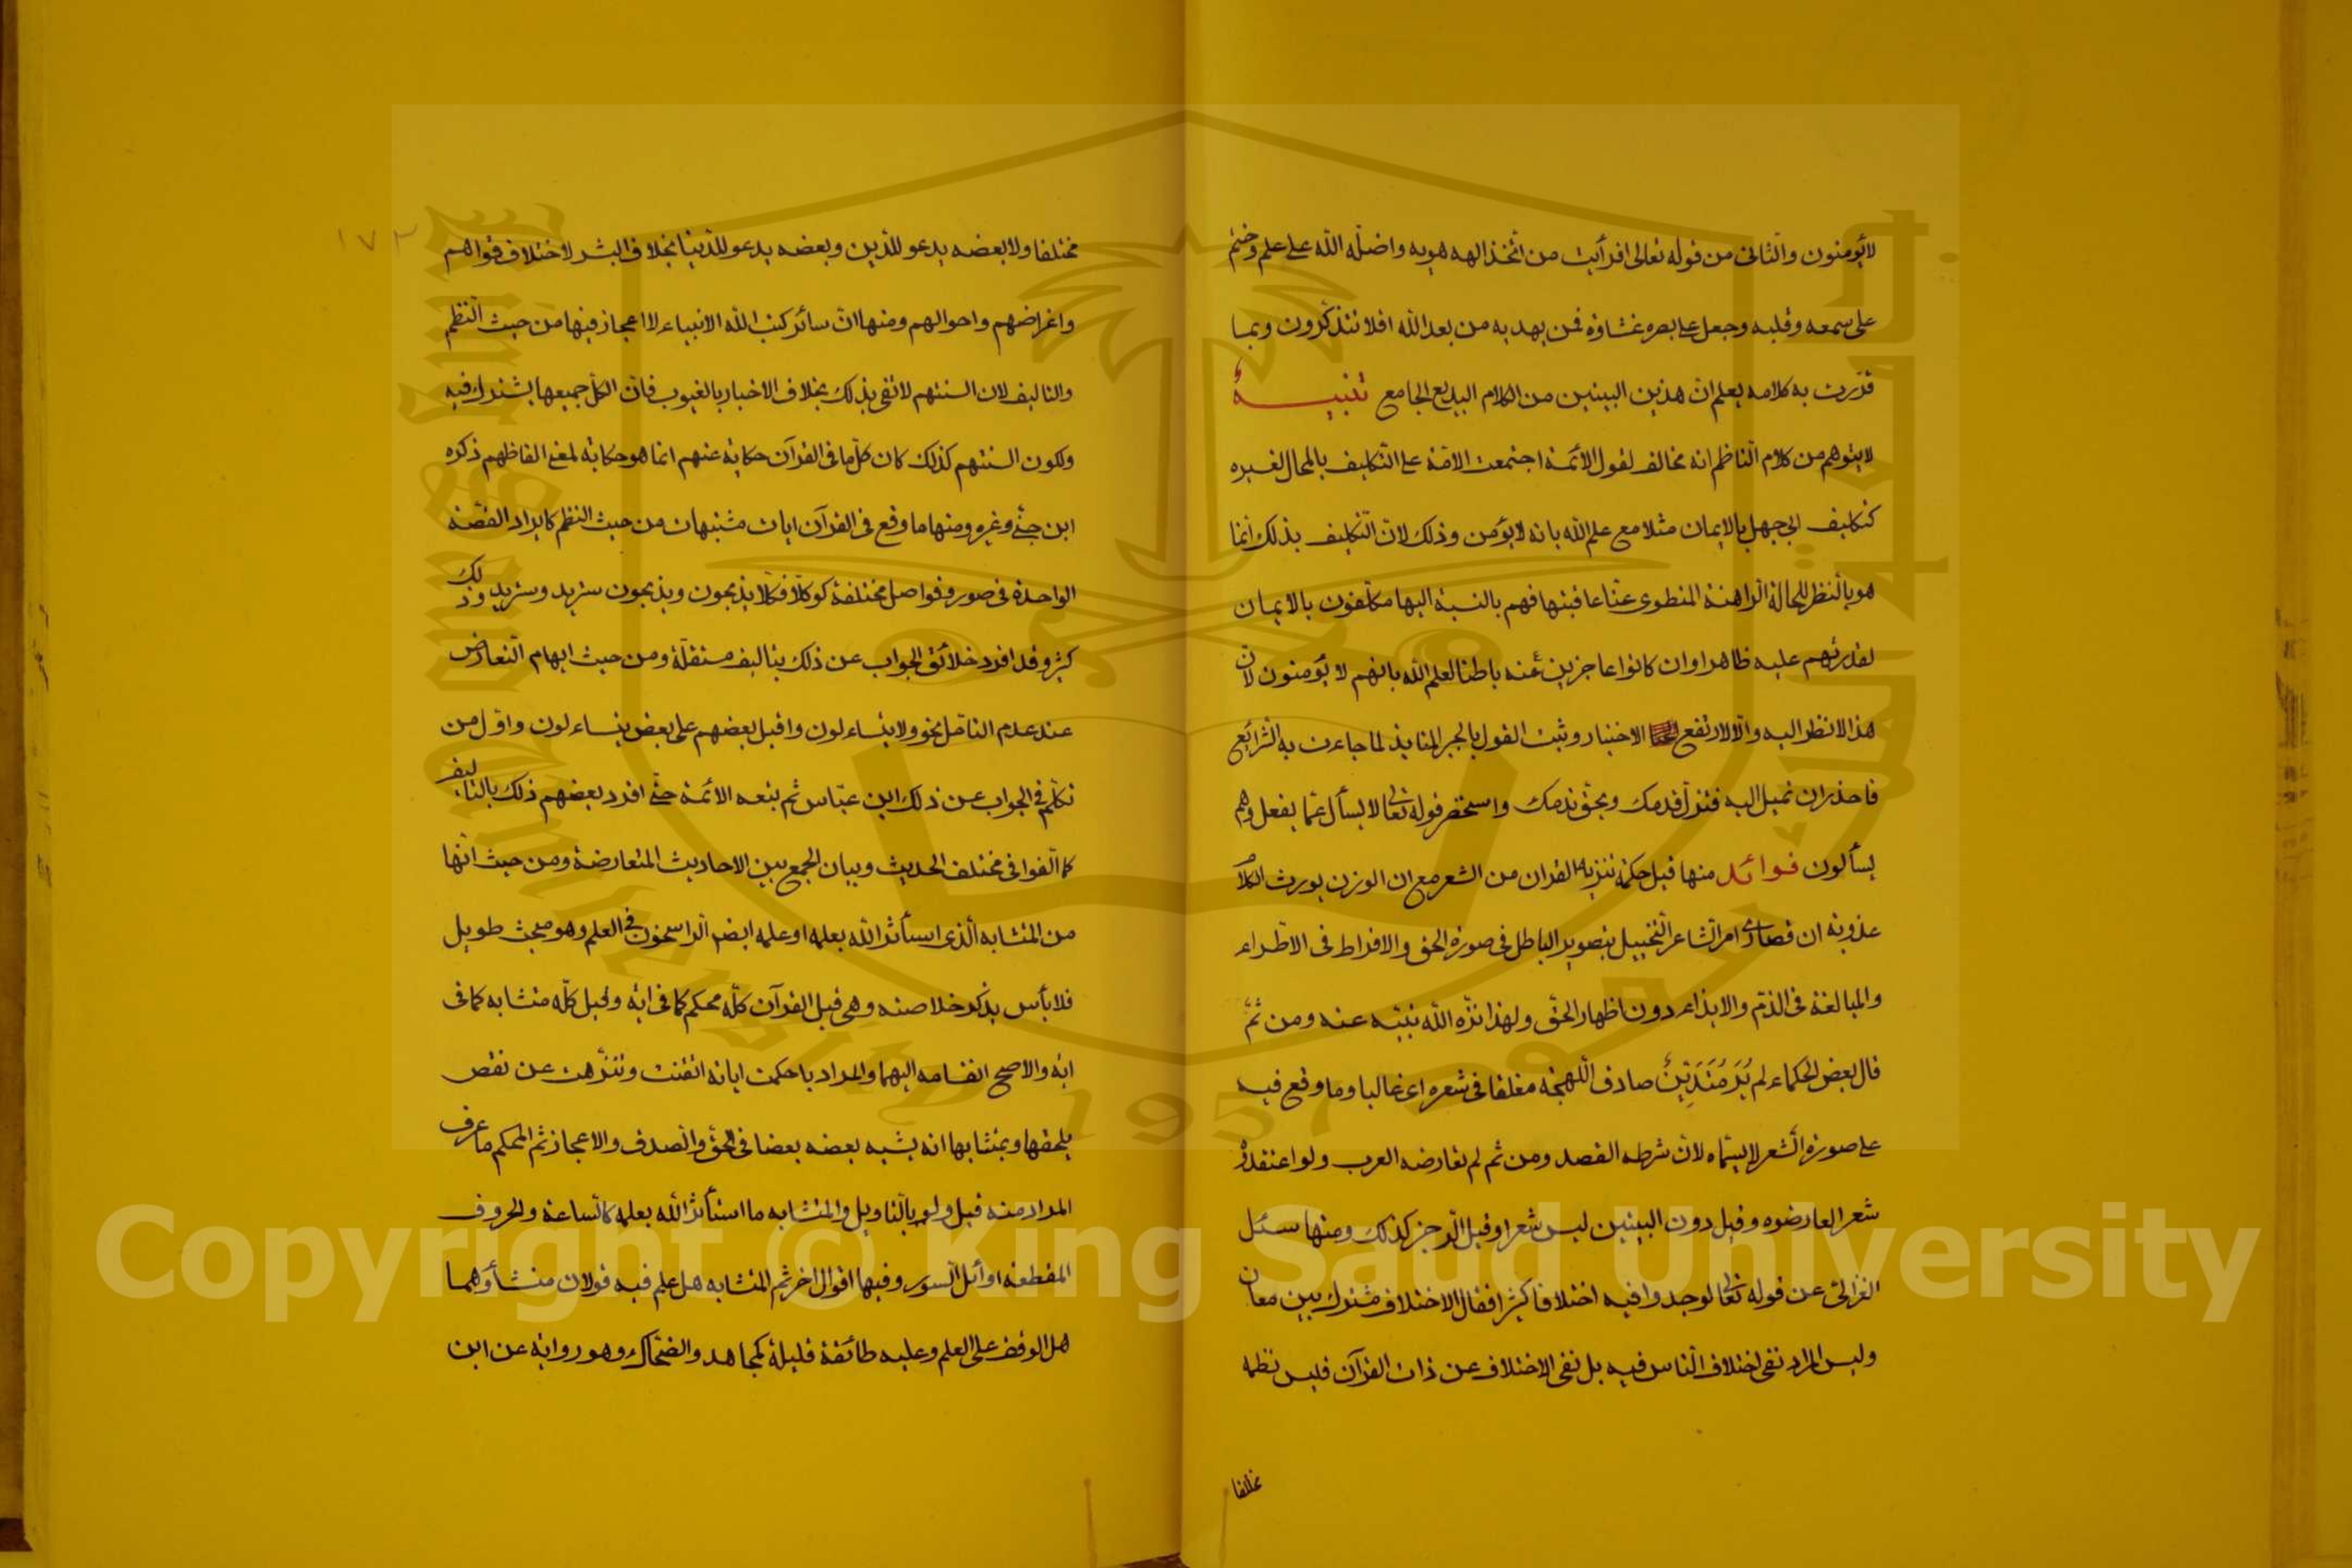 لا يؤمنون والثانى من قوله تعالى افرأيت من اتخذ الهه هويه واضله الله على علم وختم
على سمعه وقلبه وجعل على بصره غشاوة فمن يهديه من بعد الله افلا تتذكرون وبما
قررت به كلامه يعلم ان هذين البيتين من الكلام البديع الجامع تنبيه
لا يتوهم من كلام الناظم انه مخالف لقول الائمة اجتمعت الامة على التكليف بالمحال لغيره
كتكليف ابى جهل بالايمان مثلا مع علم الله بانه لا يؤمن وذلك لان التكليف بذلك انما
هو بالنظر للحالة الراهنة المنطوى عنا عاقبتها فهم بالنسبة اليها مكلفون بالايمان
لقدرتهم عليه ظاهرا وان كانوا عاجزين عنه باطنا لعلم الله بانهم لا يؤمنون لان
هذا لا نظر اليه والا لارتفع الاختيار وثبت القول بالجبر المنابذ لما جاءت به الشرائع
فاحذر ان تميل اليه فتزل قدمك ويحق ندمك واستحضر قوله تعالى لا يسأل عما يفعل وهم
يسألون فوائد منها قيل حكمة تنزيه القران من الشعر مع ان الوزن يورث الكلام
عذوبة ان قصارى امر الشاعر التخييل بتصوير الباطل فى صورة الحق والافراط فى الاطراء
والمبالغة فى الذم والايذاء دون اظهار الحق ولهذا نزه الله نبيه عنه ومن ثم
قال بعض الحكماء لم يُرَ مُتَدَيِّنٌ صادق اللهجة مفلقا فى شعره اى غالبا وما وقع فيه
على صورة الشعر لا يسماه لان شرطه القصد ومن ثم لم تعارضه العرب ولو اعتقدوه
شعرا لعارضوه وقيل دون البيتين ليس شعرا وقيل الرجز كذلك ومنها سئل
الغزالى عن قوله تعالى لوجدوا فيه اختلافا كثيرا فقال الاختلاف مشترك بين معان
وليس المراد نفى اختلاف الناس فيه بل نفى الاختلاف عن ذات القرآن فليس نظمه
مختلفا
١٧٢
مختلفا ولا بعضه يدعو للدين وبعضه يدعو للدنيا بخلاف البشر لاختلاف قواهم
واغراضهم واحوالهم ومنها ان سائر كتب الله الانبياء لا اعجاز فيها من حيث النظم
والتاليف لان السنتهم لا تفى بذلك بخلاف الاخبار بالغيوب فان الكل جميعها يشترك فيه
ولكون السنتهم كذلك كان كل ما فى القرآن حكاية عنهم انما هو حكاية لمعنى الفاظهم ذكره
ابن جنى وغيره ومنها ما وقع فى القرآن ايات مشتبهات من حيث النظم كايراد القصة
الواحدة فى صور وفواصل مختلفة كو كلا فكلا يذبحون ويذبحون سنزيد وسنزيد وذلك
كثير وقد افرد خلائق الجواب عن ذلك بتاليف مستقلة ومن حيث ايهام التعارض
عند عدم التامل نحو ولا يتساءلون واقبل بعضهم على بعض يتساءلون واول من
تكلم فى الجواب عن ذلك ابن عباس ثم تبعه الائمة حتى افرد بعضهم ذلك بالتاليف
كما الفوا فى مختلف الحديث وبيان الجمع بين الاحاديث المتعارضة ومن حيث انها
من المتشابه الذى استأثر الله بعلمه او علمه ايضا الراسخون فى العلم وهو مبحث طويل
فلا بأس بذكر خلاصته وهى قيل القرآن كله محكم كما فى اية وقيل كله متشابه كما فى
اية والاصح انقسامه اليهما والمراد باحكمت اياته اتقنت وتنزهت عن نقص
يلحقها وبمتشابها انه يشبه بعضه بعضا فى الحق والصدق والاعجاز ثم المحكم ما عرف
المراد منه قيل ولو بالتاويل والمتشابه ما استأثر الله بعلمه كالساعة والحروف
المقطعة اوائل السور وفيها اقوال اخر ثم المتشابه هل علم فيه قولان منشأوهما
هل الوقف على العلم وعليه طائفة قليلة كمجاهد والضحاك وهو رواية عن ابن
Copyright © King Saud University